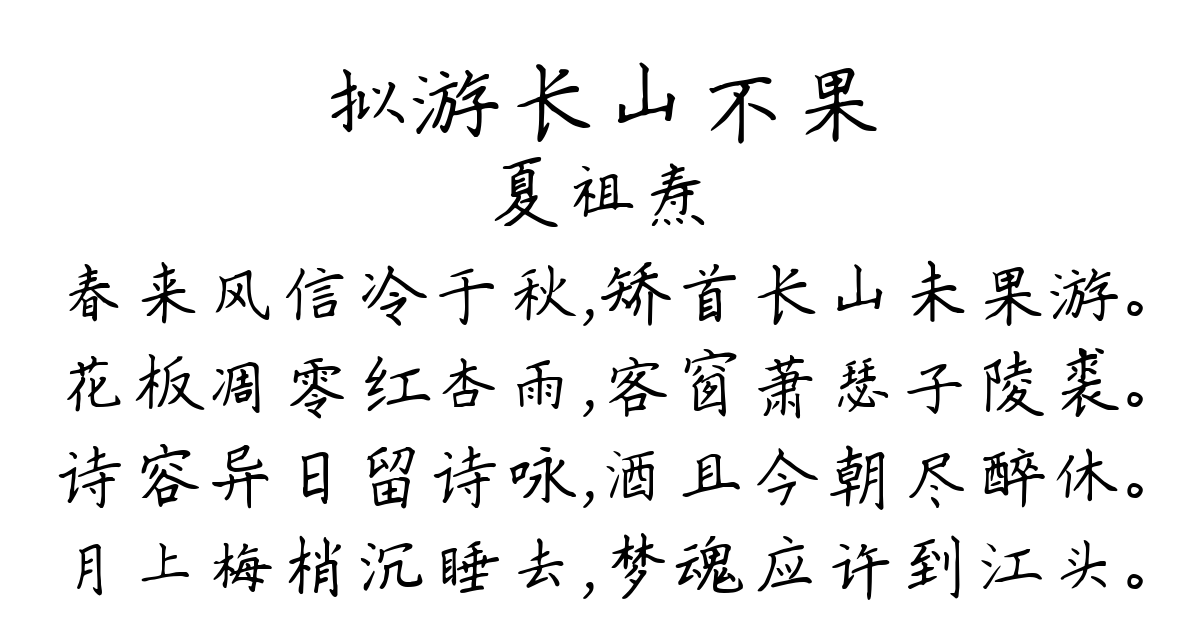 拟游长山不果
夏祖焘
春来风信冷于秋,矫首长山未果游。
花板凋零红杏雨,客窗萧瑟子陵裘。
诗容异日留诗咏,酒且今朝尽醉休。
月上梅梢沉睡去,梦魂应许到江头。